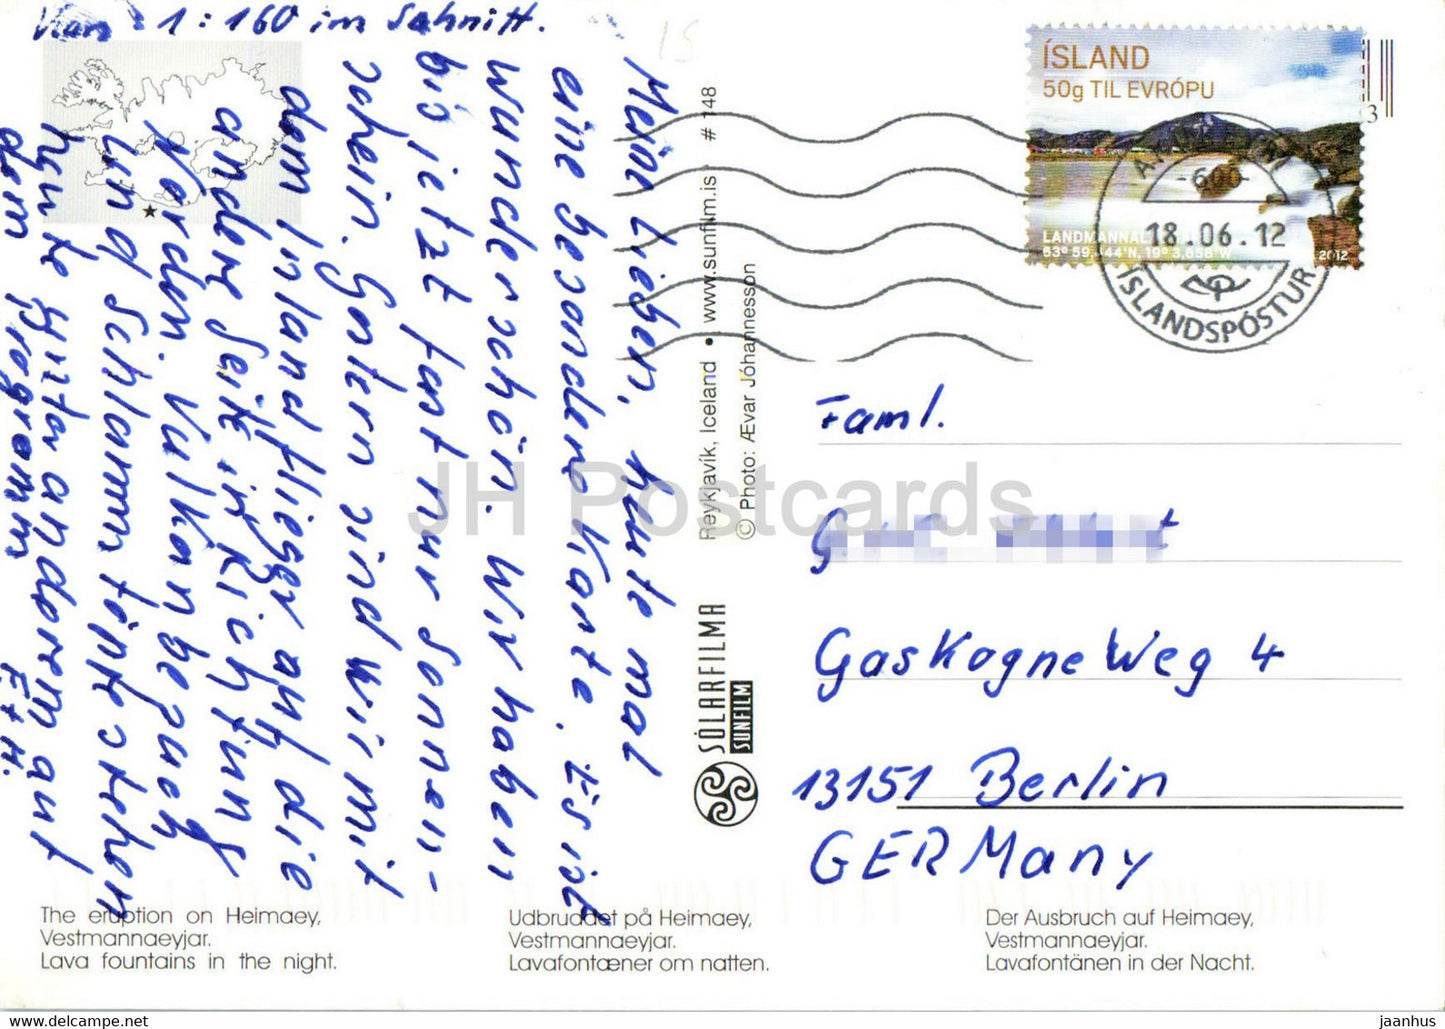 Meine Lieben, heute mal
eine besondere Karte. Es ist
wunderschön. Wir haben
bis jetzt fast nur Sonnen-
schein. Gestern sind wir mit
dem Inlandflieger auf die
andere Seite in Richtung
Norden. Vulkanbesuch
und Schlammtöpfe stehen
heute unter anderem auf
dem Programm
E + H.
1 : 160 im Schnitt.
Reykjavík, Iceland • www.sunfilm.is • # 148
© Photo: Ævar Jóhannesson
SÓLARFILMA
SUNFILM
ÍSLAND
50g TIL EVRÓPU
LANDMANNAL
63° 59, 44'N, 19° 3,658'W
2012
3
-600-
18.06.12
ÍSLANDSPÓSTUR
15
Faml.
Gaskogne Weg 4
13151 Berlin
GERMany
JH Postcards
The eruption on Heimaey,
Vestmannaeyjar.
Lava fountains in the night.
Udbruddet på Heimaey,
Vestmannaeyjar.
Lavafontæner om natten.
Der Ausbruch auf Heimaey,
Vestmannaeyjar.
Lavafontänen in der Nacht.
www.delcampe.net
jaanhus